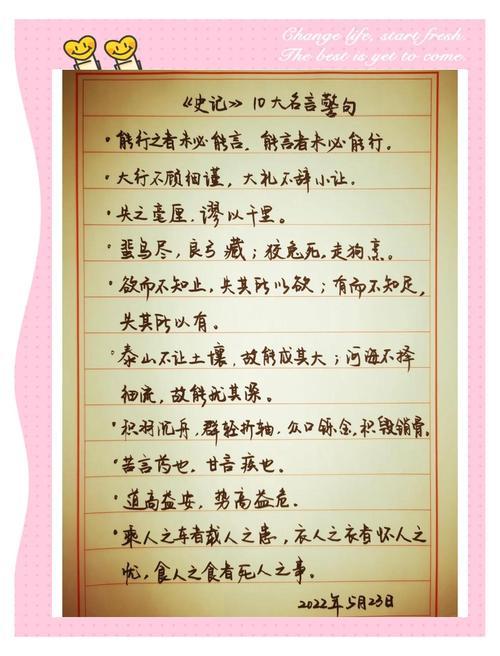 Change life, start fresh.
The best is yet to come.
《史记》10大名言警句
·能行之者未必能言，能言者未必能行。
·大行不顾细谨，大礼不辞小让。
·失之毫厘，谬以千里。
·蜚鸟尽，良弓藏；狡兔死，走狗烹。
·欲而不知止，失其所以欲；有而不知足，
失其所以有。
·泰山不让土壤，故能成其大；河海不择
细流，故能就其深。
·积羽沉舟，群轻折轴，众口铄金，积毁销骨。
·苦言药也，甘言疾也。
·道高益安，势高益危。
·乘人之车者载人之患，衣人之衣者怀人之
忧，食人之食者死人之事。
2022年5月23日